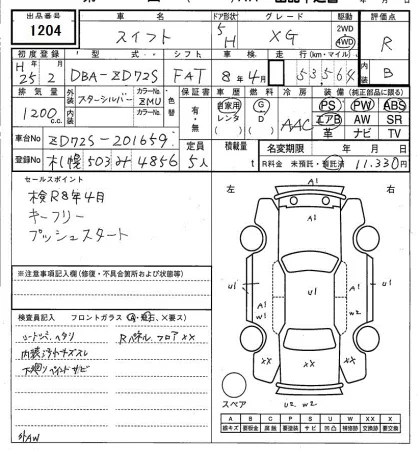 出品番号 車名 ドア形状 グレード 駆動 評価点
1204 スイフト 5 H XG 2WD 4WD R
初度登録 型式 シフト 車検 走行(km・マイル) 内装
H25 2 DBA-ZD72S FAT 8年4月 53,564 B
排気量 外装 カラーNo. 色替 保証書 車歴 燃料 冷房 装備(純正部品に限る)
1200c.c. スターシルバー ZMU 有・無 自家用 レンタ ( ) G D AAC PS PW ABS
内装 カラーNo. エアB AW SR
革 ナビ TV
車台No ZD72S-201659 定員 積載量 名変期限 年 月 日
登録No 札幌 503 み 4856 5人 t R料金 未預託・預託済 11.330円
セールスポイント
検R8年4月
キーフリー
プッシュスタート
左 右
A1
U1 A1 U1 A1 U1
W1 W2
XX XX
スペア U2 W2
※注意事項記入欄(修復・不具合箇所および状態等)
検査員記入 フロントガラス (A・飛石、X要ス)
シートシミ、ヘタリ Rパネル、フロアXX
内装
下廻り サビ
外AW
A B C P S U W XX X
線キズ 要鈑金 腐無 要塗装 サビ 凹凸 補修跡 交換跡 要交換